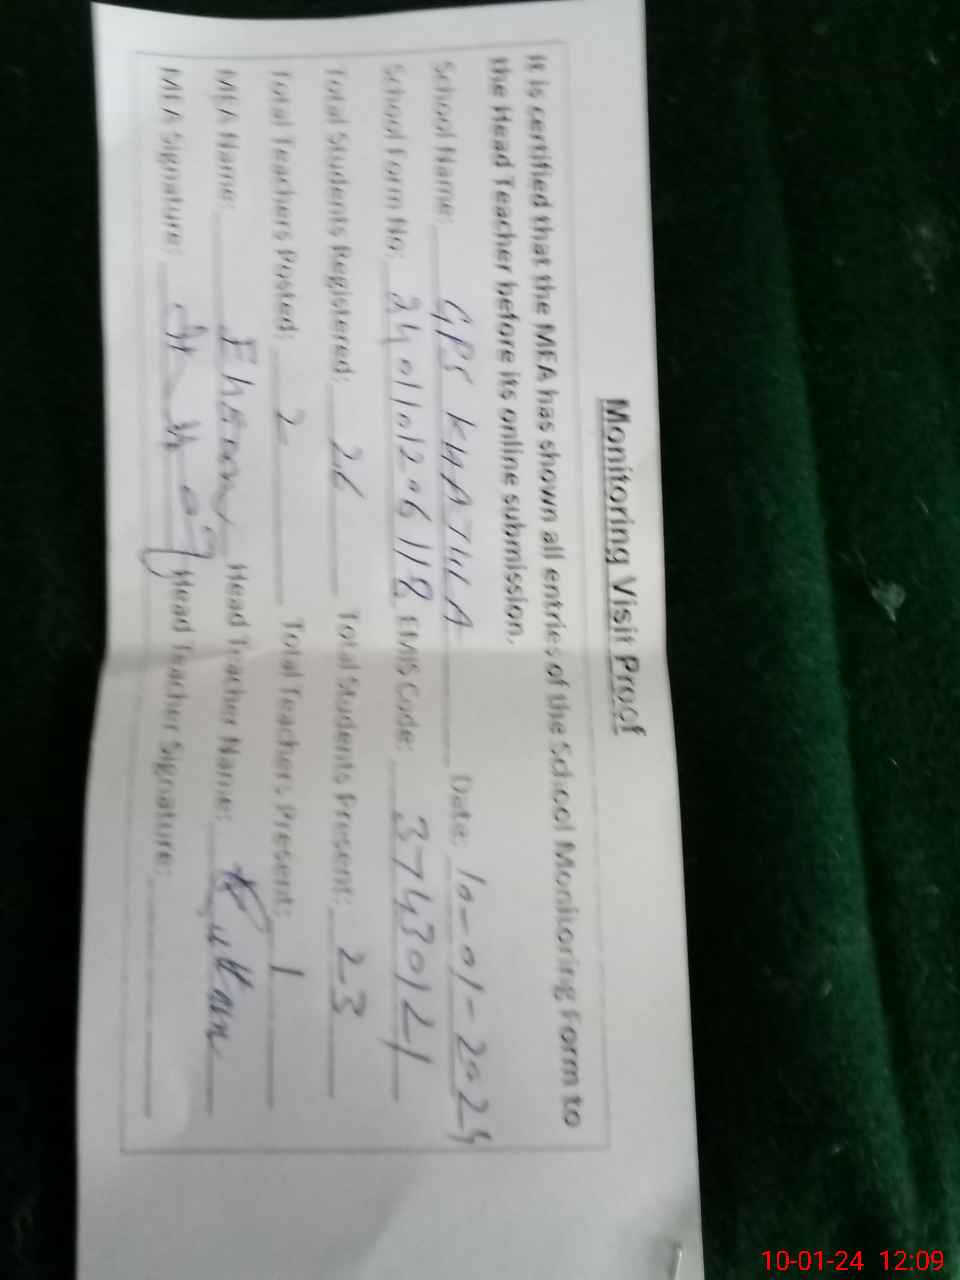 Monitoring Visit Proof
It is certified that the MEA has shown all entries of the School Monitoring Form to
the Head Teacher before its online submission.
School Name: GPS KHATULA Date: 10-01-2024
School Form No: EMIS Code:
Total Students Registered: 26 Total Students Present: 23
Total Teachers Posted: 2 Total Teachers Present: 1
MEA Name: Head Teacher Name:
MEA Signature: Head Teacher Signature:
10-01-24 12:09